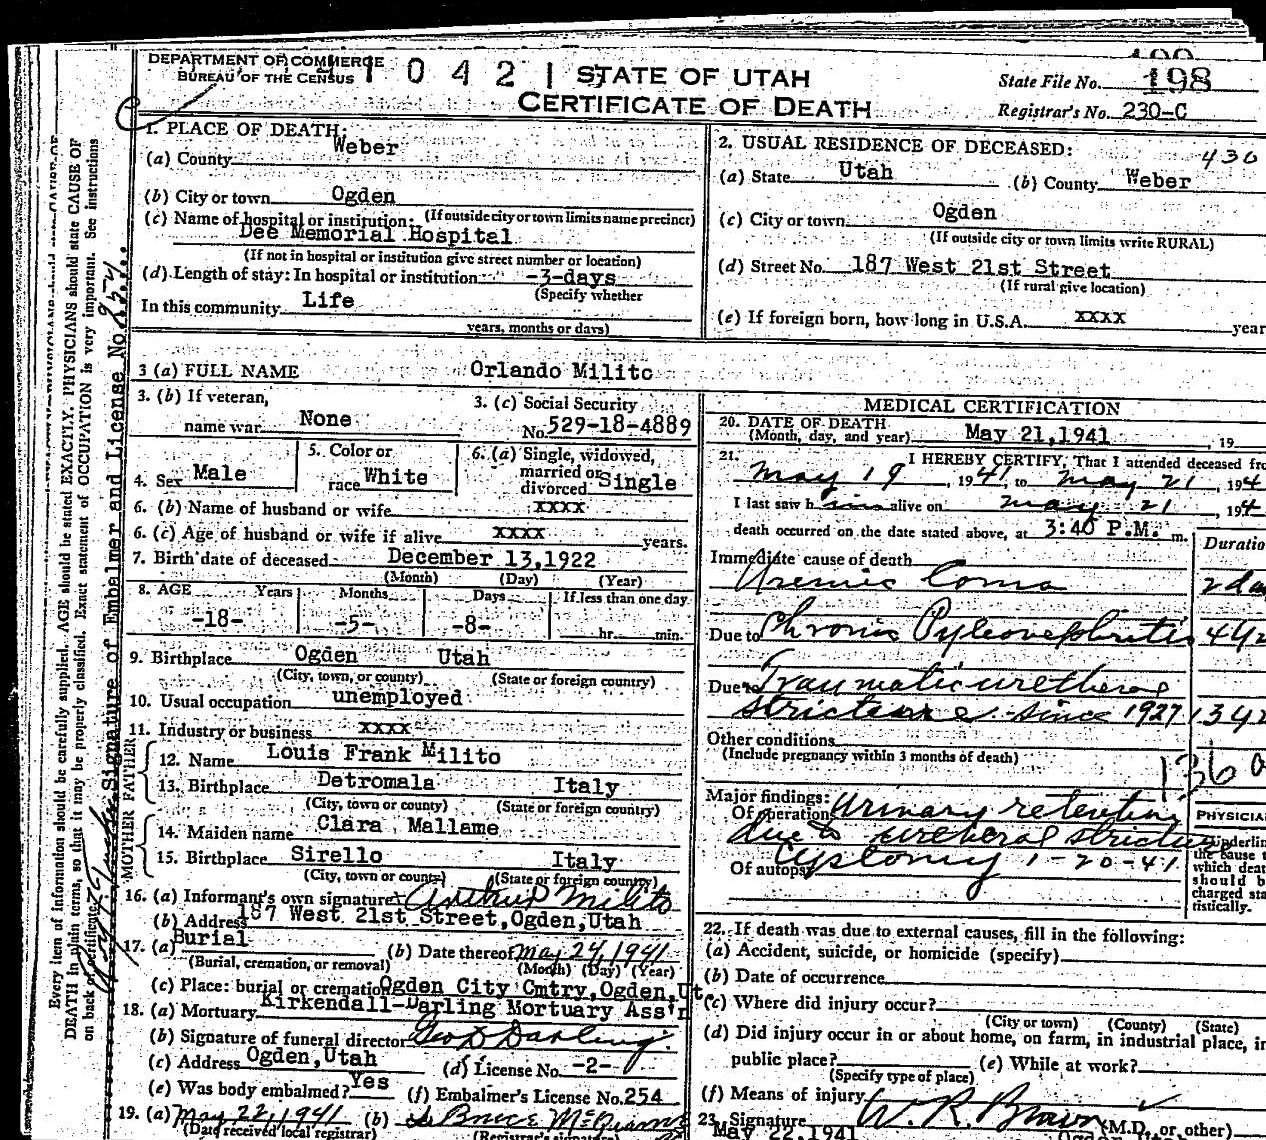 DEPARTMENT OF COMMERCE
BUREAU OF THE CENSUS
1 0 4 2 1
STATE OF UTAH
CERTIFICATE OF DEATH
State File No. 198
Registrar's No. 230-C
1. PLACE OF DEATH:
(a) County Weber
(b) City or town Ogden
(If outside city or town limits name precinct)
(c) Name of hospital or institution:
Dee Memorial Hospital
(If not in hospital or institution give street number or location)
(d) Length of stay: In hospital or institution -3-days
(Specify whether
In this community Life
years, months or days)
2. USUAL RESIDENCE OF DECEASED:
430
(a) State Utah (b) County Weber
(c) City or town Ogden
(If outside city or town limits write RURAL)
(d) Street No. 187 West 21st Street
(If rural give location)
(e) If foreign born, how long in U.S.A. xxxx year
3 (a) FULL NAME Orlando Milito
3. (b) If veteran, name war None
3. (c) Social Security No. 529-18-4889
4. Sex Male
5. Color or race White
6. (a) Single, widowed, married or divorced Single
6. (b) Name of husband or wife xxxx
6. (c) Age of husband or wife if alive xxxx years.
7. Birth date of deceased December 13,1922
(Month) (Day) (Year)
8. AGE Years Months Days If less than one day
-18- -5- -8- hr. min.
9. Birthplace Ogden Utah
(City, town, or county) (State or foreign country)
10. Usual occupation unemployed
11. Industry or business xxxx
FATHER
12. Name Louis Frank Milito
13. Birthplace Detromala Italy
(City, town or county) (State or foreign country)
MOTHER
14. Maiden name Clara Mallame
15. Birthplace Sirello Italy
(City, town or county) (State or foreign country)
16. (a) Informant's own signature Arthur Milito
(b) Address 187 West 21st Street,Ogden,Utah
17. (a) Burial (b) Date thereof May 24,1941
(Burial, cremation, or removal) (Month) (Day) (Year)
(c) Place: burial or cremation Ogden City Cmtry,Ogden,Ut.
18. (a) Mortuary Kirkendall-Darling Mortuary Ass'n
(b) Signature of funeral director Geo D Darling
(c) Address Ogden,Utah (d) License No. -2-
(e) Was body embalmed? Yes (f) Embalmer's License No. 254
19. (a) May 22,1941 (b)
(Date received local registrar) (Registrar's signature)
MEDICAL CERTIFICATION
20. DATE OF DEATH
(Month, day, and year) May 21,1941 , 19
21. I HEREBY CERTIFY, That I attended deceased fro
May 19 , 1941, to May 21 , 194
I last saw him alive on May 21 , 194
death occurred on the date stated above, at 3:40 P.M. m.
Duratio
Immediate cause of death
Uremic Coma 2 da
Due to Chronic Pyleonephritis 4 y
Due to Traumatic urethral
stricture since 1927 13 y
Other conditions
(Include pregnancy within 3 months of death)
136 a
Major findings:
Of operations Urinary retention
due to urethral stricture
Cystomy 1-20-41
Of autopsy
PHYSICIA
Underlin
the cause t
which deat
should b
charged sta
tistically.
22. If death was due to external causes, fill in the following:
(a) Accident, suicide, or homicide (specify)
(b) Date of occurrence
(c) Where did injury occur?
(City or town) (County) (State)
(d) Did injury occur in or about home, on farm, in industrial place, in
public place? (e) While at work?
(Specify type of place)
(f) Means of injury
23. Signature W. R. Brown (M.D. or other)
May 22,1941
Every item of information should be carefully supplied. AGE should be stated EXACTLY. PHYSICIANS should state CAUSE OF
DEATH in plain terms, so that it may be properly classified. Exact statement of OCCUPATION is very important. See instructions
on back of certificate.
Signature of Embalmer and License No.